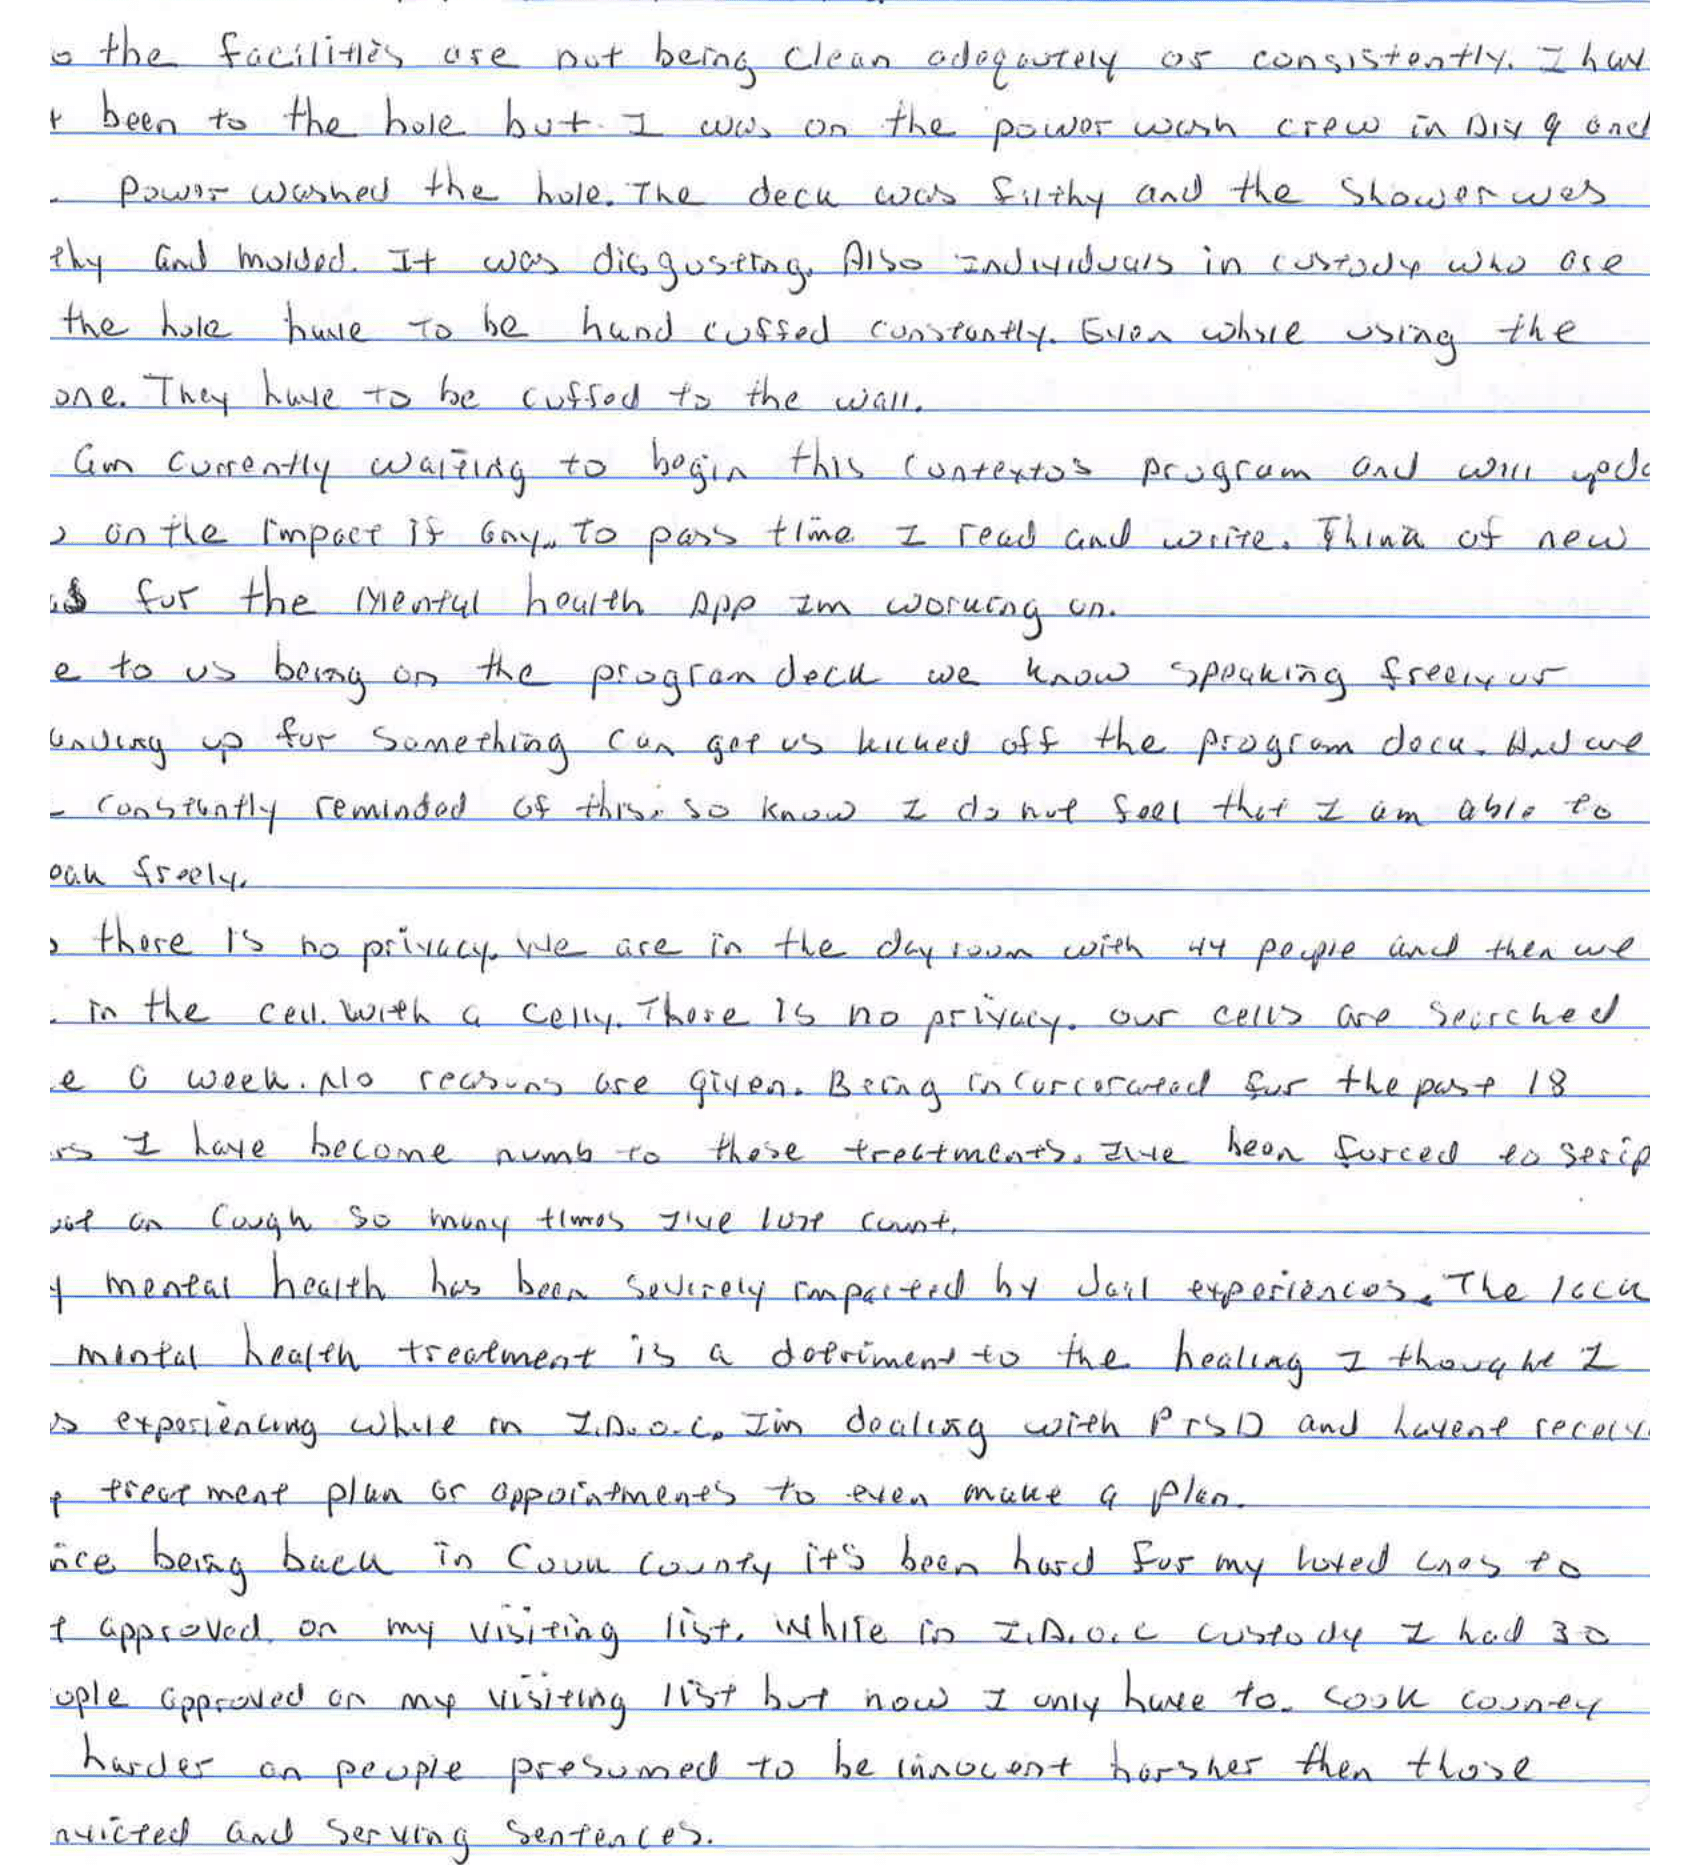 o the facilities are not being clean adeqautely or consistently. I hav
t been to the hole but I was on the power wash crew in Div 9 and
Power washed the hole. The deck was filthy and the shower was
thy and molded. It was disgusting. Also individuals in custody who are
the hole have to be hand cuffed constantly. Even while using the
one. They have to be cuffed to the wall.
am currently waiting to begin this Contextos program and will upda
on the impact if any. To pass time I read and write. Think of new
s for the Mental health App Im working on.
e to us being on the program deck we know speaking freely or
anding up for something can get us kicked off the program deck. And we
constantly reminded of this. so know I do not feel that I am able to
eak freely.
o there is no privacy. We are in the day room with 44 people and then we
in the cell. With a celly. There is no privacy. our cells are searched
e a week. No reasons are given. Being incarcerated for the past 18
rs I have become numb to these treatments. I've been forced to strip
an cough so many times I've lost count.
y mental health has been severely impacted by Jail experiences. The lack
mental health treatment is a detriment to the healing I thought I
s experiencing while in I.D.O.C. Im dealing with PTSD and havent receiv
treatment plan or appointments to even make a plan.
nce being back in Cook County it's been hard for my loved ones to
t approved on my visiting list. While in I.D.O.C custody I had 30
ople approved on my visiting list but now I only have to. Cook county
harder on people presumed to be innocent harsher then those
nvicted and serving sentences.